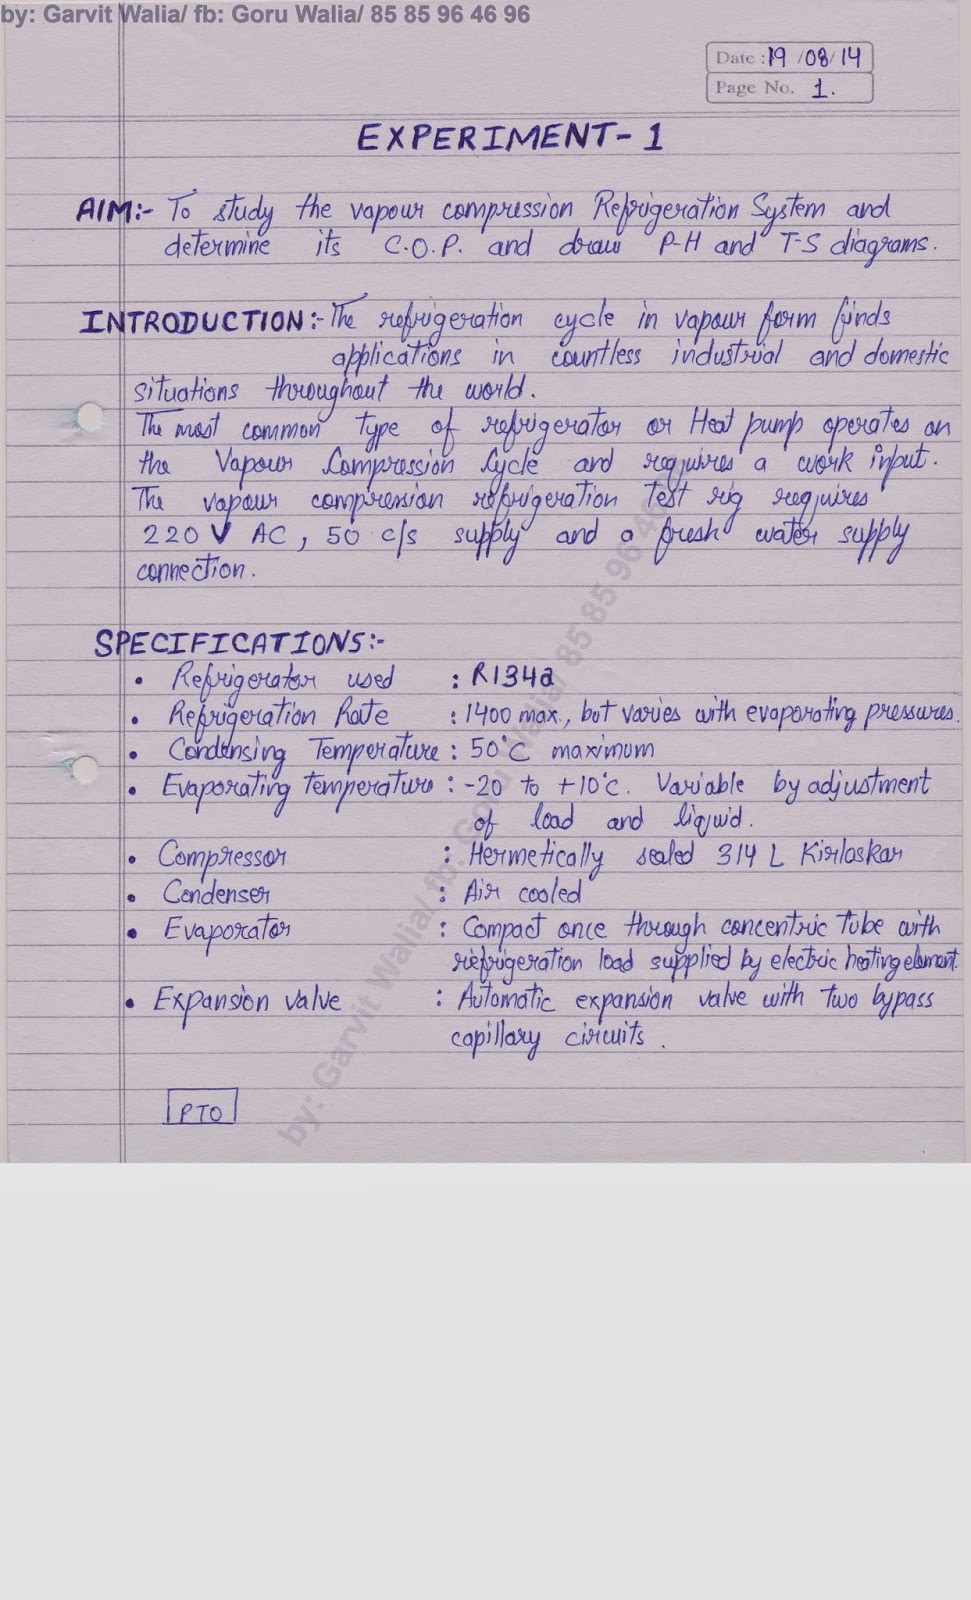 by: Garvit Walia/ fb: Goru Walia/ 85 85 96 46 96
Date : 19 /08/ 14
Page No. 1.
EXPERIMENT- 1
AIM:- To study the vapour compression Refrigeration System and
determine its C.O.P. and draw P-H and T-S diagrams.
INTRODUCTION:- The refrigeration cycle in vapour form finds
applications in countless industrial and domestic
situations throughout the world.
The most common type of refrigerator or Heat pump operates on
the Vapour Compression Cycle and requires a work input.
The vapour compression refrigeration Test rig requires
220 V AC, 50 c/s supply and a fresh water supply
connection.
SPECIFICATIONS:-
• Refrigerator used : R134a
• Refrigeration Rate : 1400 max., but varies with evaporating pressures.
• Condensing Temperature : 50°C maximum
• Evaporating temperature : -20 to +10°C. Variable by adjustment
of load and liquid.
• Compressor : Hermetically sealed 314 L Kirloskar
• Condenser : Air cooled
• Evaporator : Compact once through concentric tube with
refrigeration load supplied by electric heating element.
• Expansion valve : Automatic expansion valve with two bypass
capillary circuits.
PTO
by: Garvit Walia/ fb: Goru Walia/ 85 85 96 46